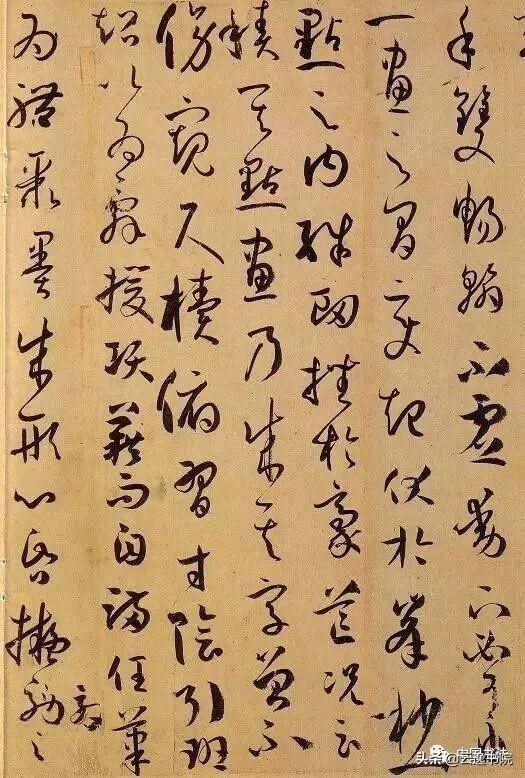 手雙暢翰不虛動下必有由
一畫之間變起伏於峯杪一
點之内殊衂挫於豪芒況云
積其點畫乃成其字曾不
傍窺尺櫝俯習寸陰引班
超以為辭援項籍而自滿任筆
為體聚墨成形心昏擬效之